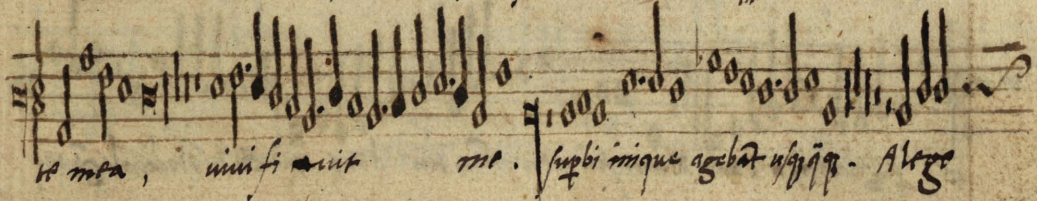 te mea, vivifi cavit me. supbi inique agebāt usqq̄q. A lege